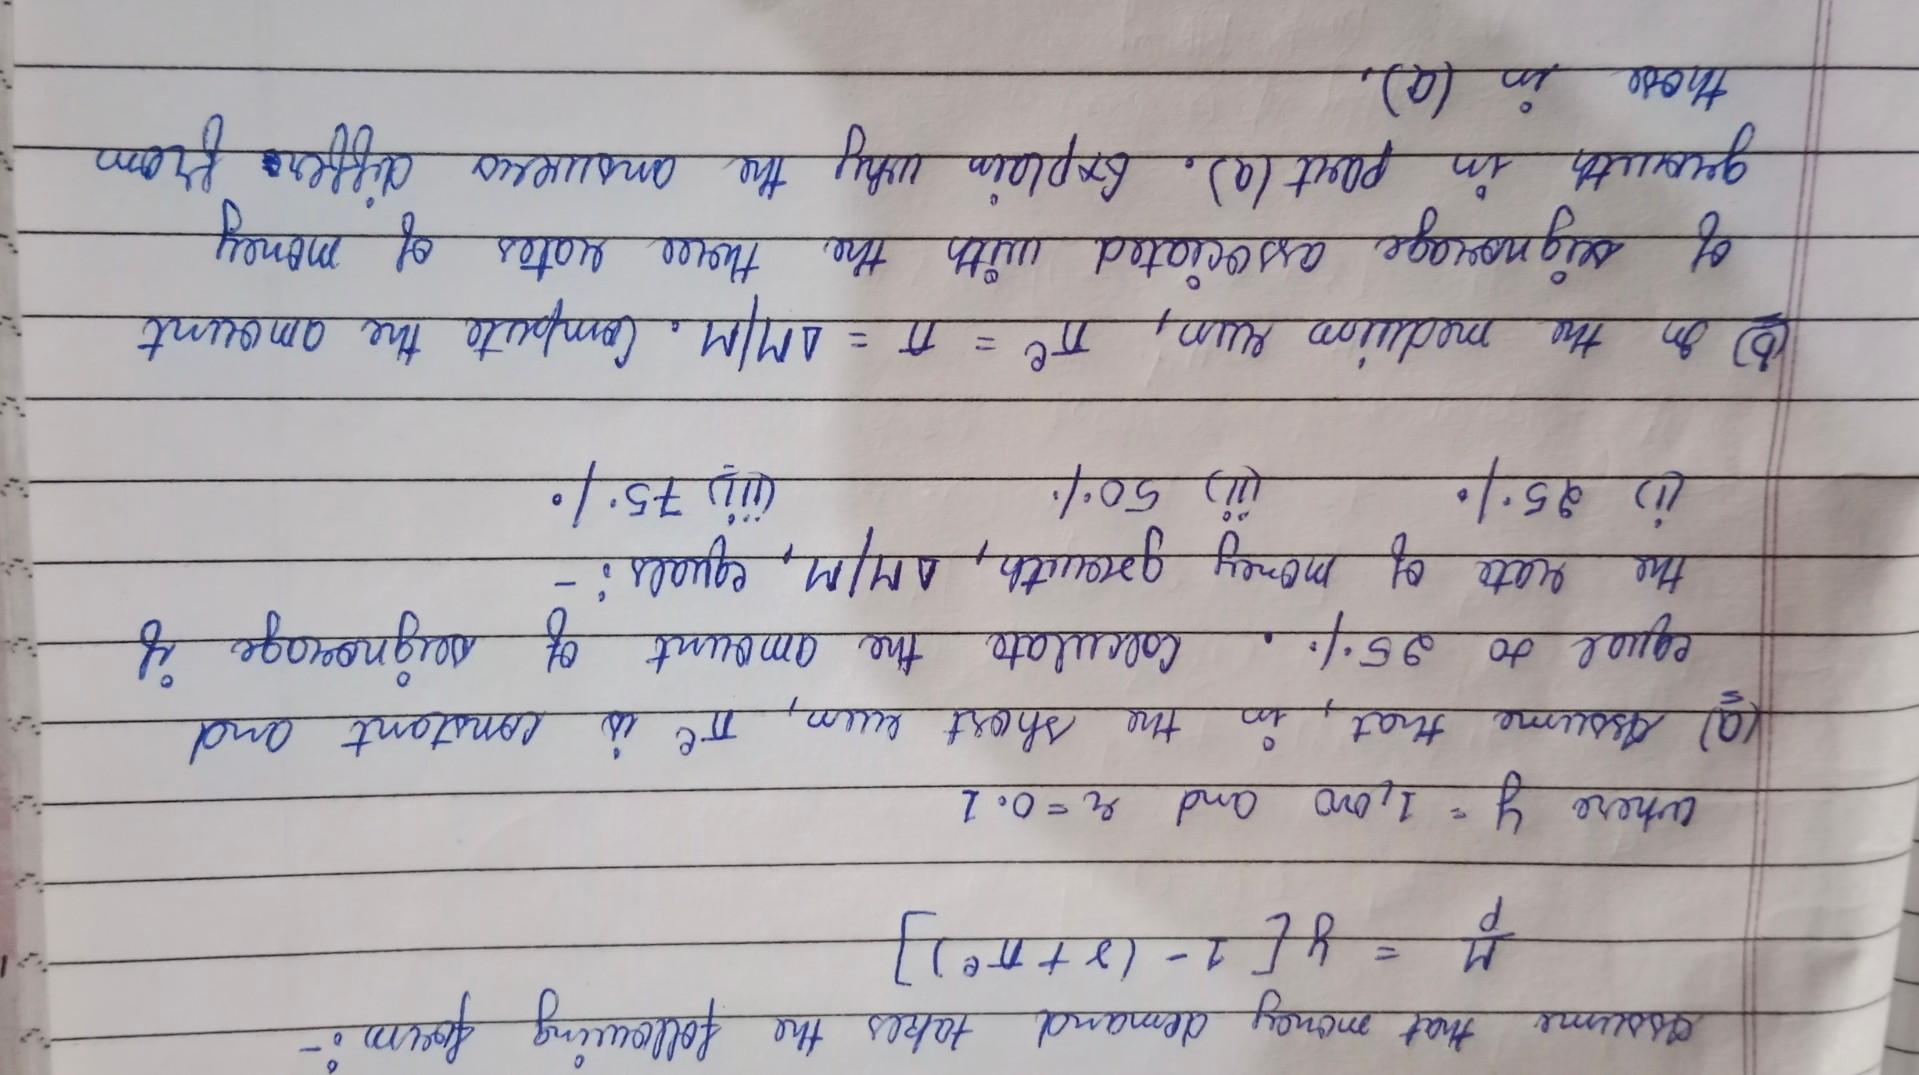 Assume that money demand takes the following form :-
M/P = Y [ 1 - (r + πe) ]
where Y = 1,000 and r = 0.1
(a) Assume that, in the short run, πe is constant and
equal to 25%. Calculate the amount of seignorage if
the rate of money growth, ΔM/M, equals :-
(i) 25% (ii) 50% (iii) 75%.
(b) In the meduim run, πe = π = ΔM/M. Compute the amount
of seignorage associated with the three rates of money
growth in part (a). Explain why the answers differ from
those in (a).